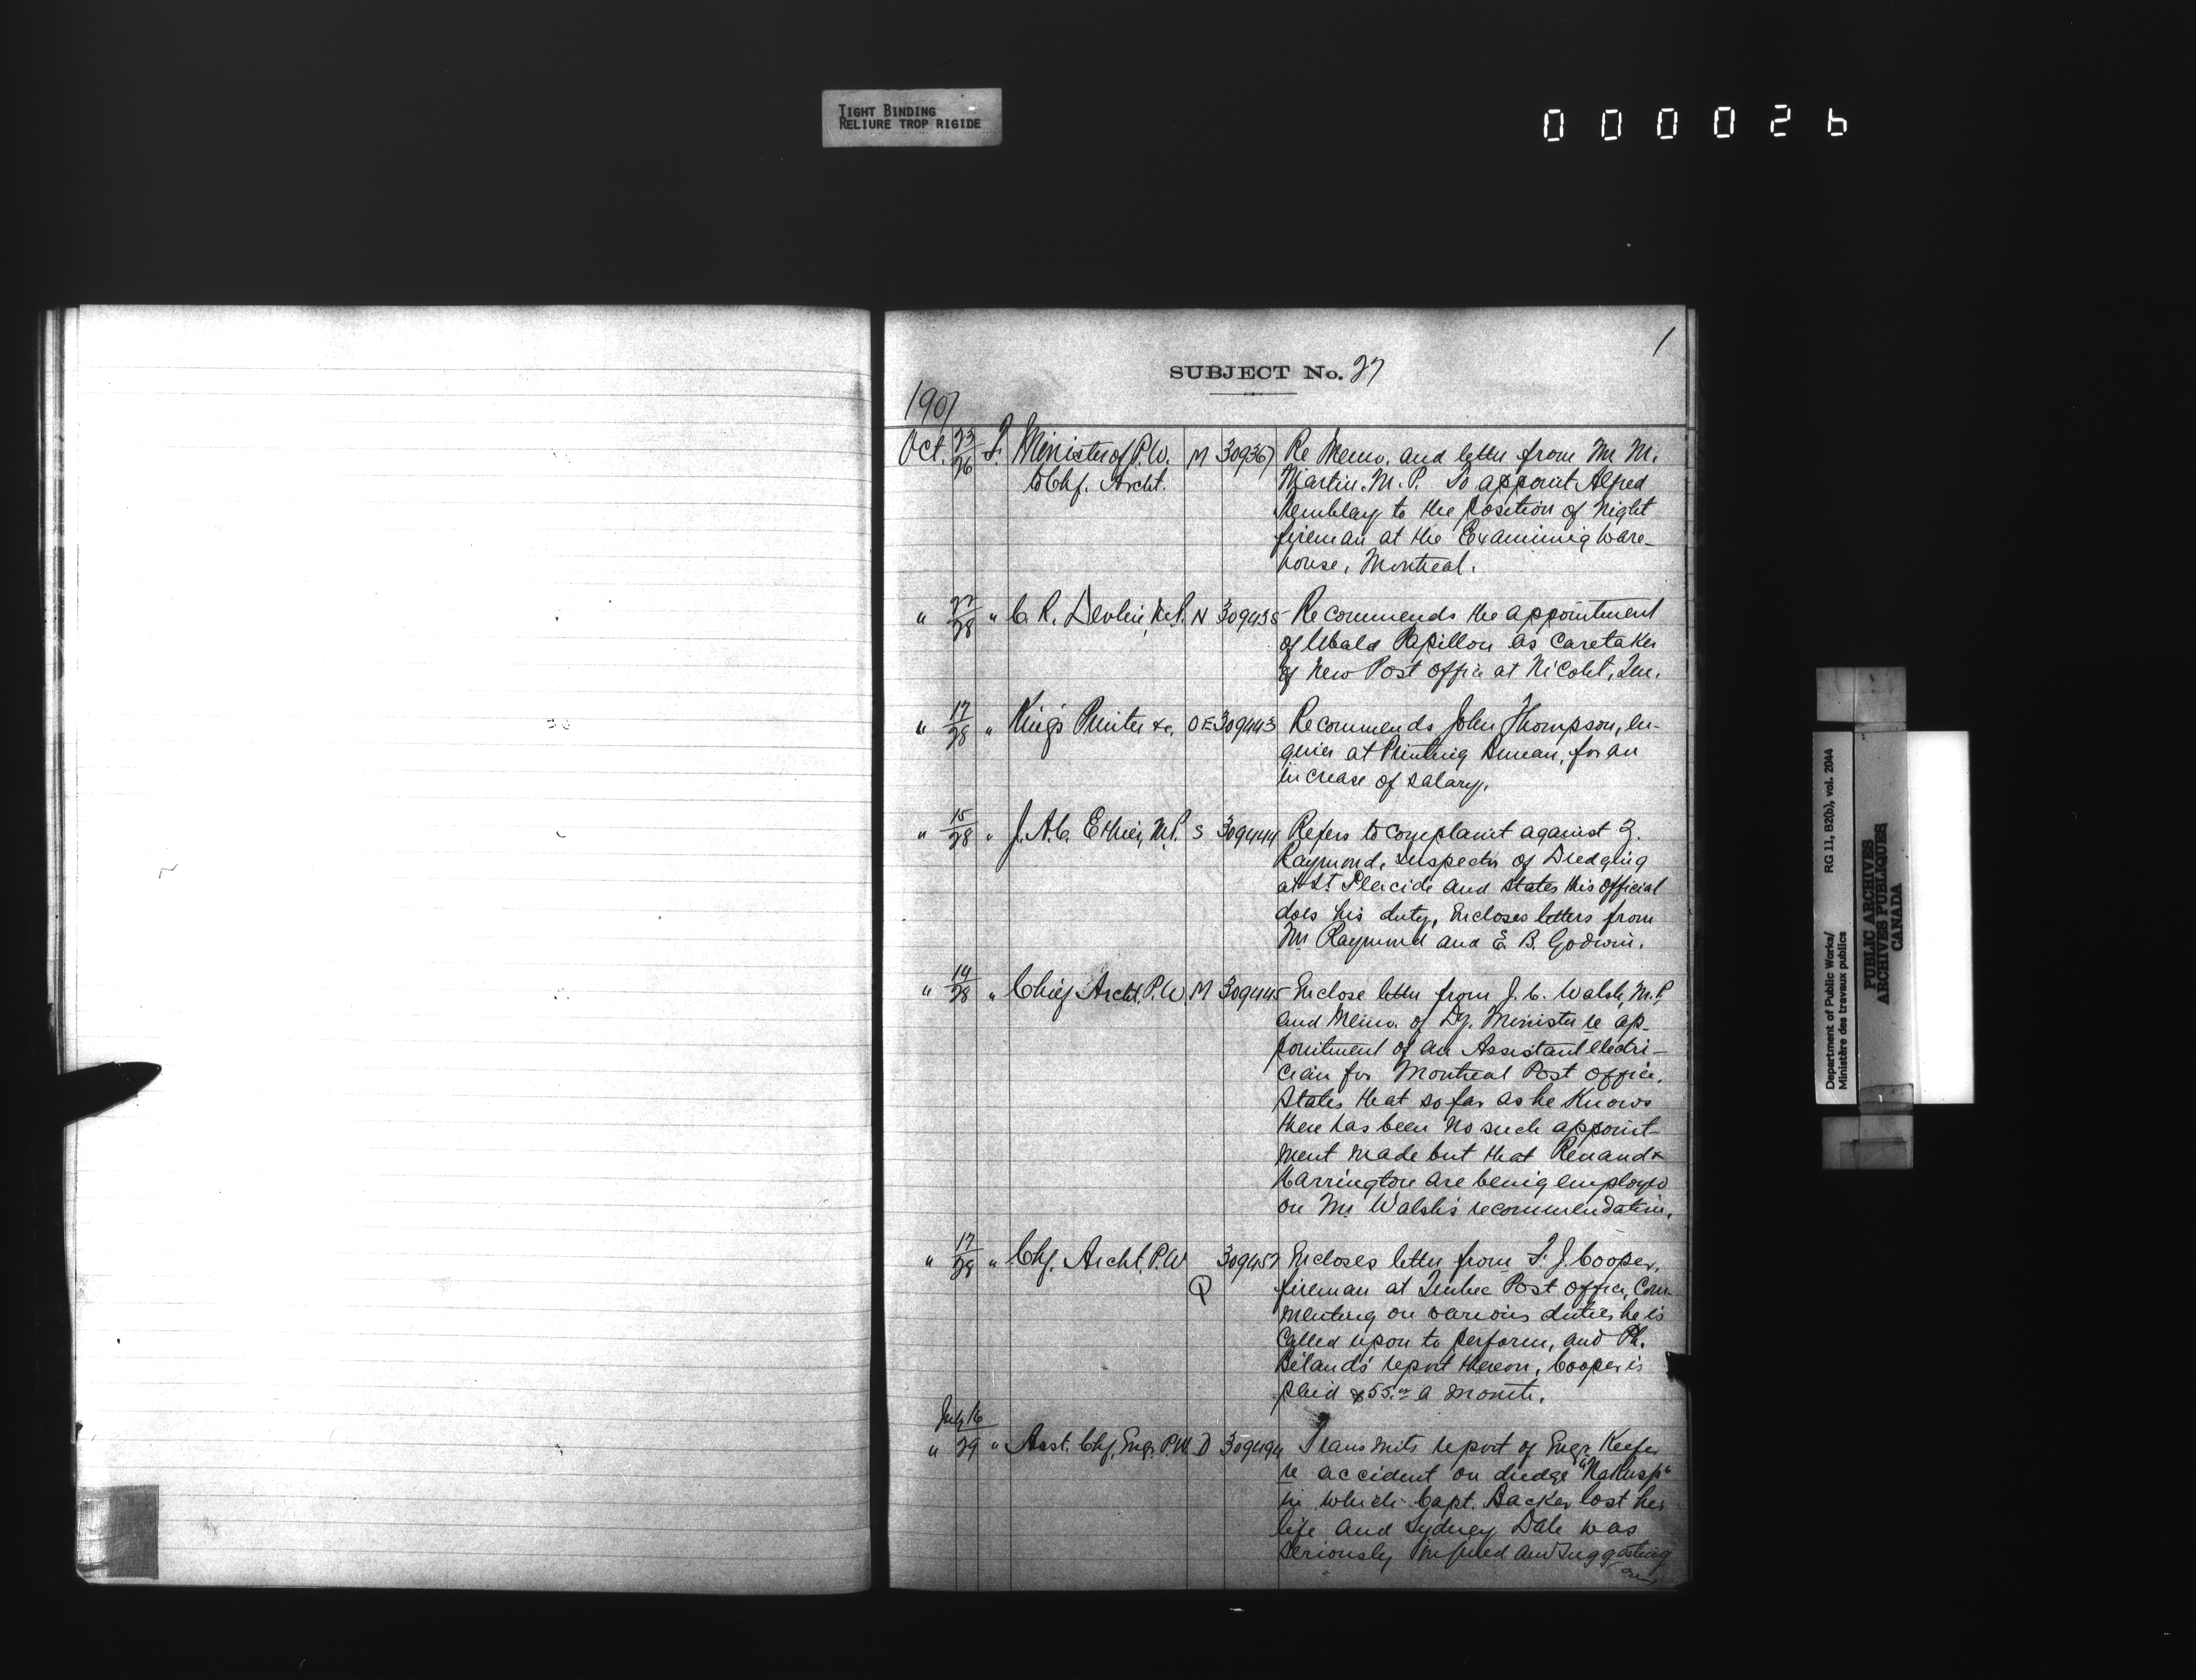 TIGHT BINDING
RELIURE TROP RIGIDE
000026
1
SUBJECT No. 27
1907
Oct. 23/26 F. Minister of P.W. M 309367 Re Memo. and letter from Mr M.
to Chf. Archt. Martin. M.P. To appoint Alfred
Tremblay to the position of night
fireman at the Examining Ware-
house, Montreal.
" 22/28 " C. R. Devlin, M.P. N 309435 Recommends the appointment
of Ubald Papillon as Caretaker
of New Post Office at Nicolet, Que.
" 17/28 " King's Printer &c. OE 309443 Recommends John Thompson, en-
gineer at Printing Bureau, for an
increase of salary.
" 15/28 " J. A. C. Ethier, M.P. S 309444 Refers to complaint against Z.
Raymond, inspector of Dredging
at St. Placide and states this official
does his duty, Encloses letters from
Mr Raymond and E. B. Godwin.
" 14/28 " Chief Archt. P.W M 309445 Enclose letter from J. C. Walsh, M.P.
and Memo. of Dy. Minister re ap-
pointment of an Assistant electri-
cian for Montreal Post Office.
States that so far as he knows
there has been no such appoint-
ment made but that Renaud &
Harrington are being employed
on Mr Walsh's recommendation.
" 17/28 " Chf. Archt. P.W 309457 Encloses letter from F. J. Cooper,
Q fireman at Quebec Post Office, Com-
menting on various duties he is
Called upon to perform, and Ph.
Béland's report thereon, Cooper is
paid $55.00 a month.
July 16
" 29 " Asst. Chf. Engr. P.W. D 309494 Transmits report of Engr. Keefer
re accident on dredge "Nakusp"
in which Capt. Backer lost his
life and Sydney Dale was
seriously injured and suggesting
Department of Public Works/
Ministère des travaux publics
RG 11, B2(b), vol. 2044
PUBLIC ARCHIVES
ARCHIVES PUBLIQUES
CANADA